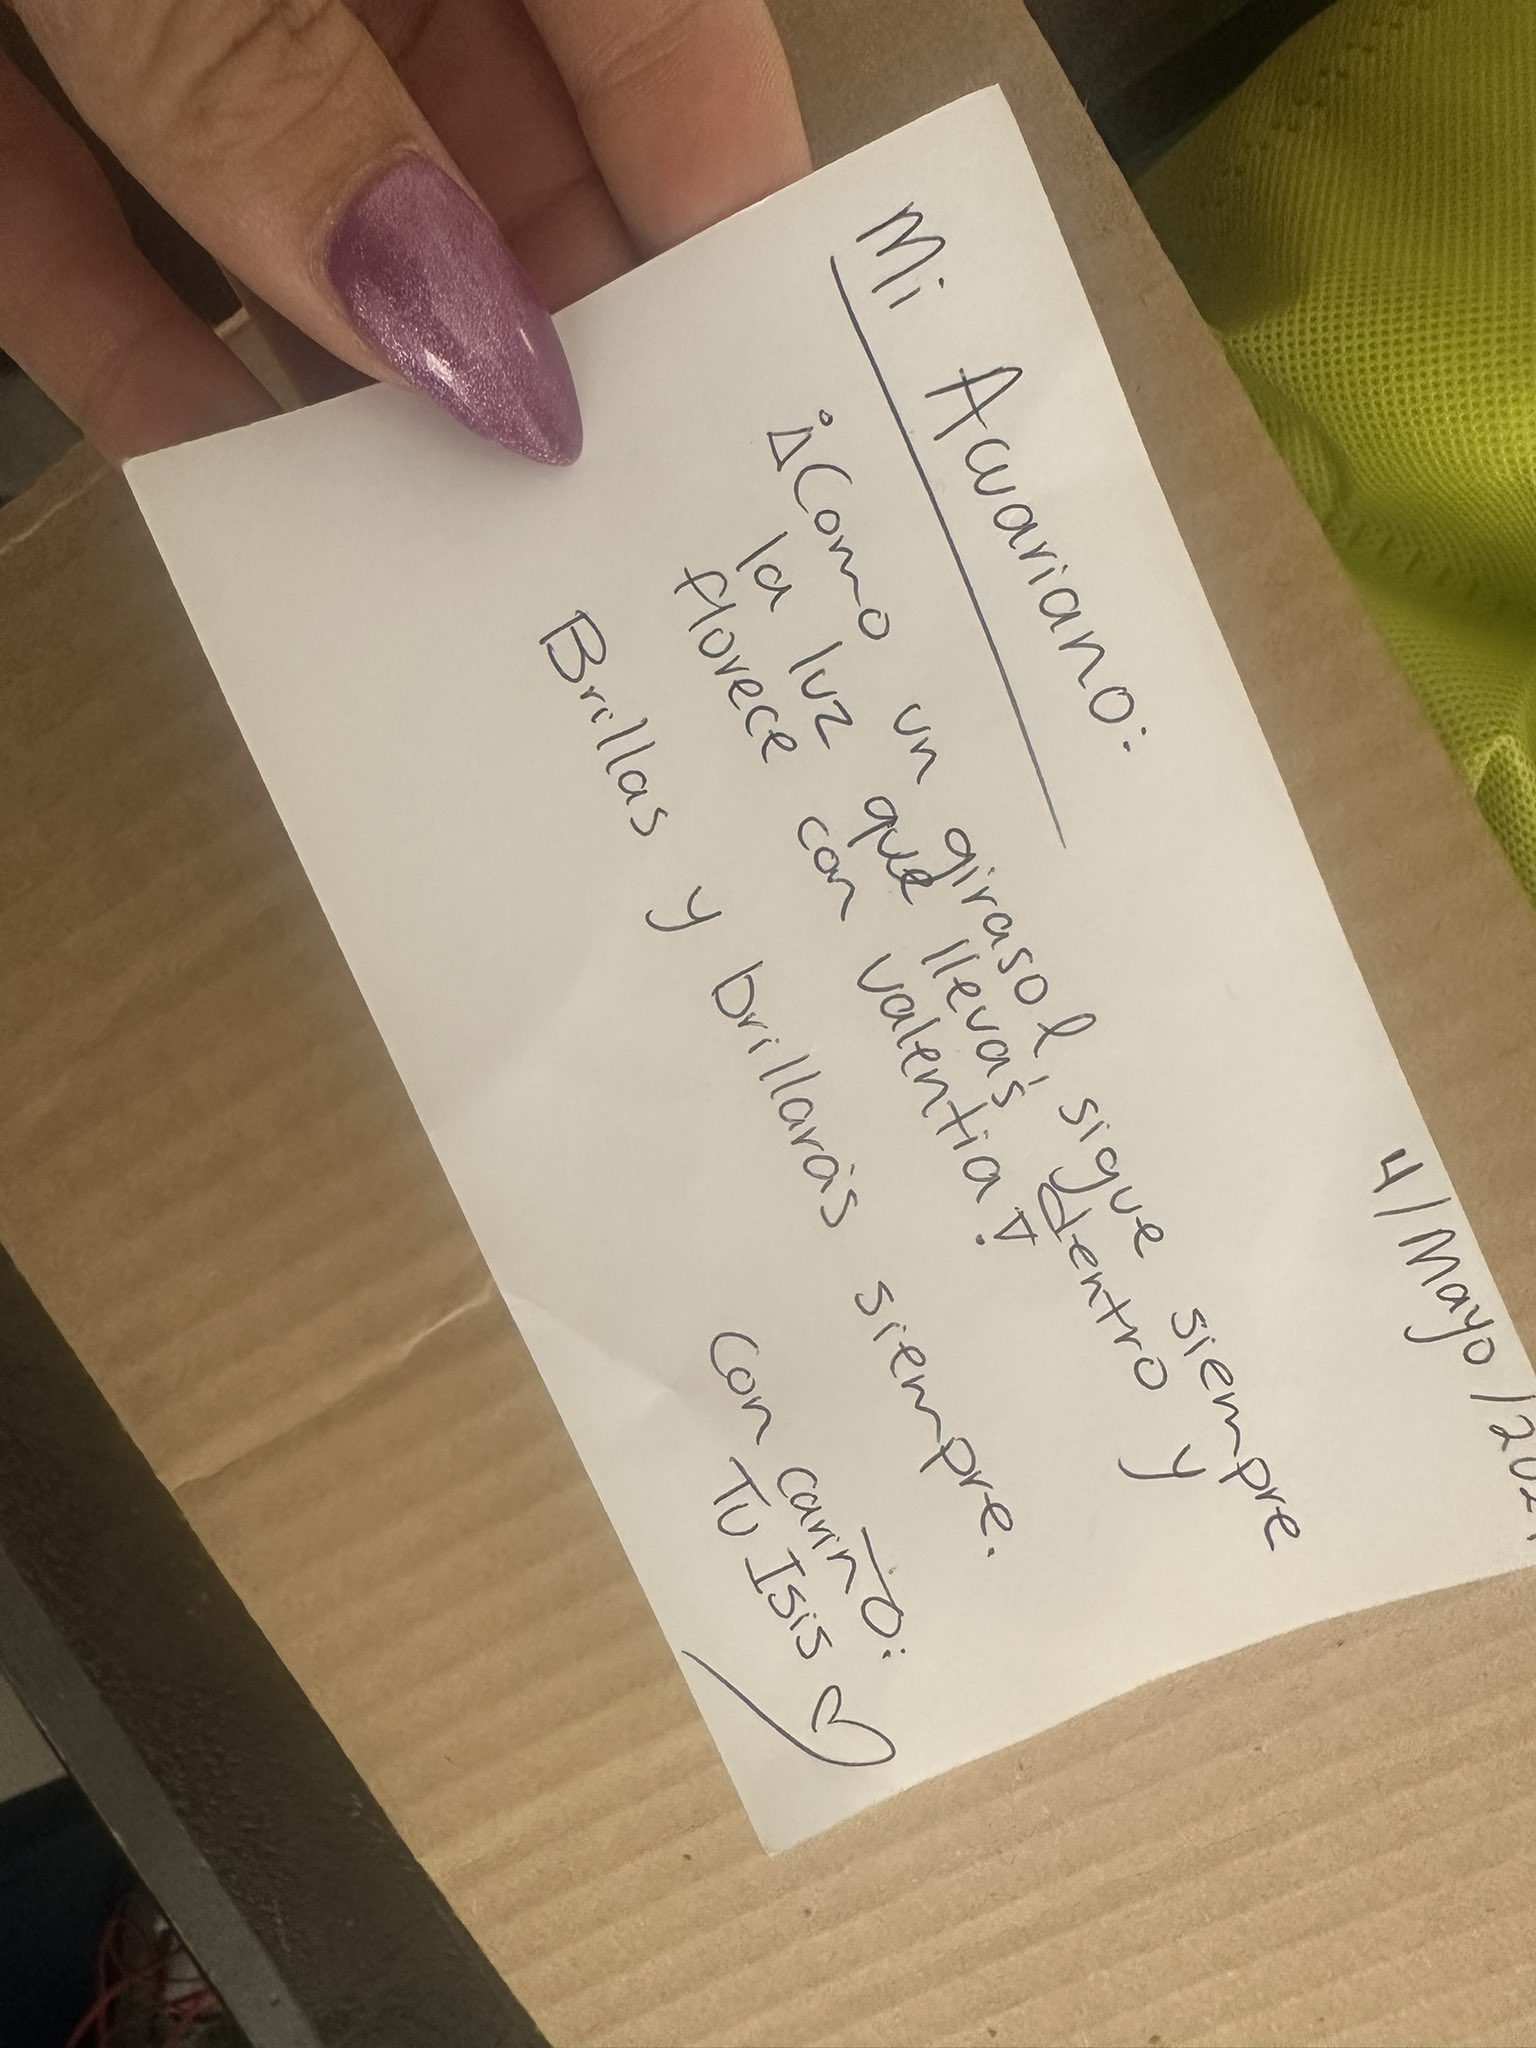 4/Mayo/202
Mi Acuariano:
¡Como un girasol, sigue siempre
la luz que llevas dentro y
florece con valentia!
Brillas y brillarás siempre.
Con cariño:
Tu Isis